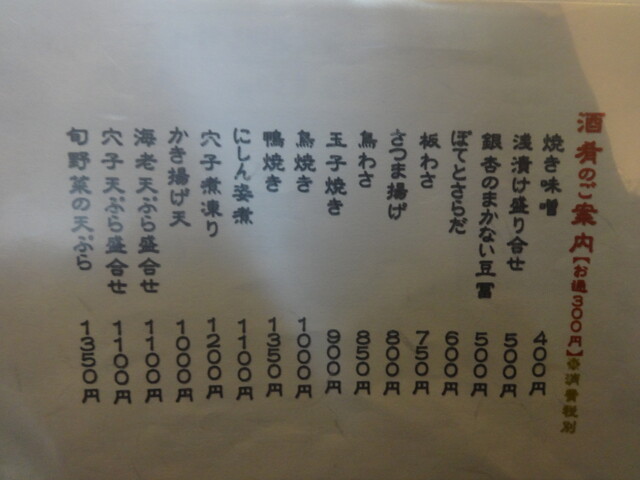 酒肴のご案内【お通300円】※消費税別
焼き味噌 400円
浅漬け盛り合せ 500円
銀杏のまかない豆富 500円
ぽてとさらだ 600円
板わさ 750円
さつま揚げ 800円
鳥わさ 850円
玉子焼き 900円
鳥焼き 1000円
鴨焼き 1350円
にしん姿煮 1100円
穴子煮凍り 1200円
かき揚げ天 1000円
海老天ぷら盛合せ 1100円
穴子天ぷら盛合せ 1100円
旬野菜の天ぷら 1350円